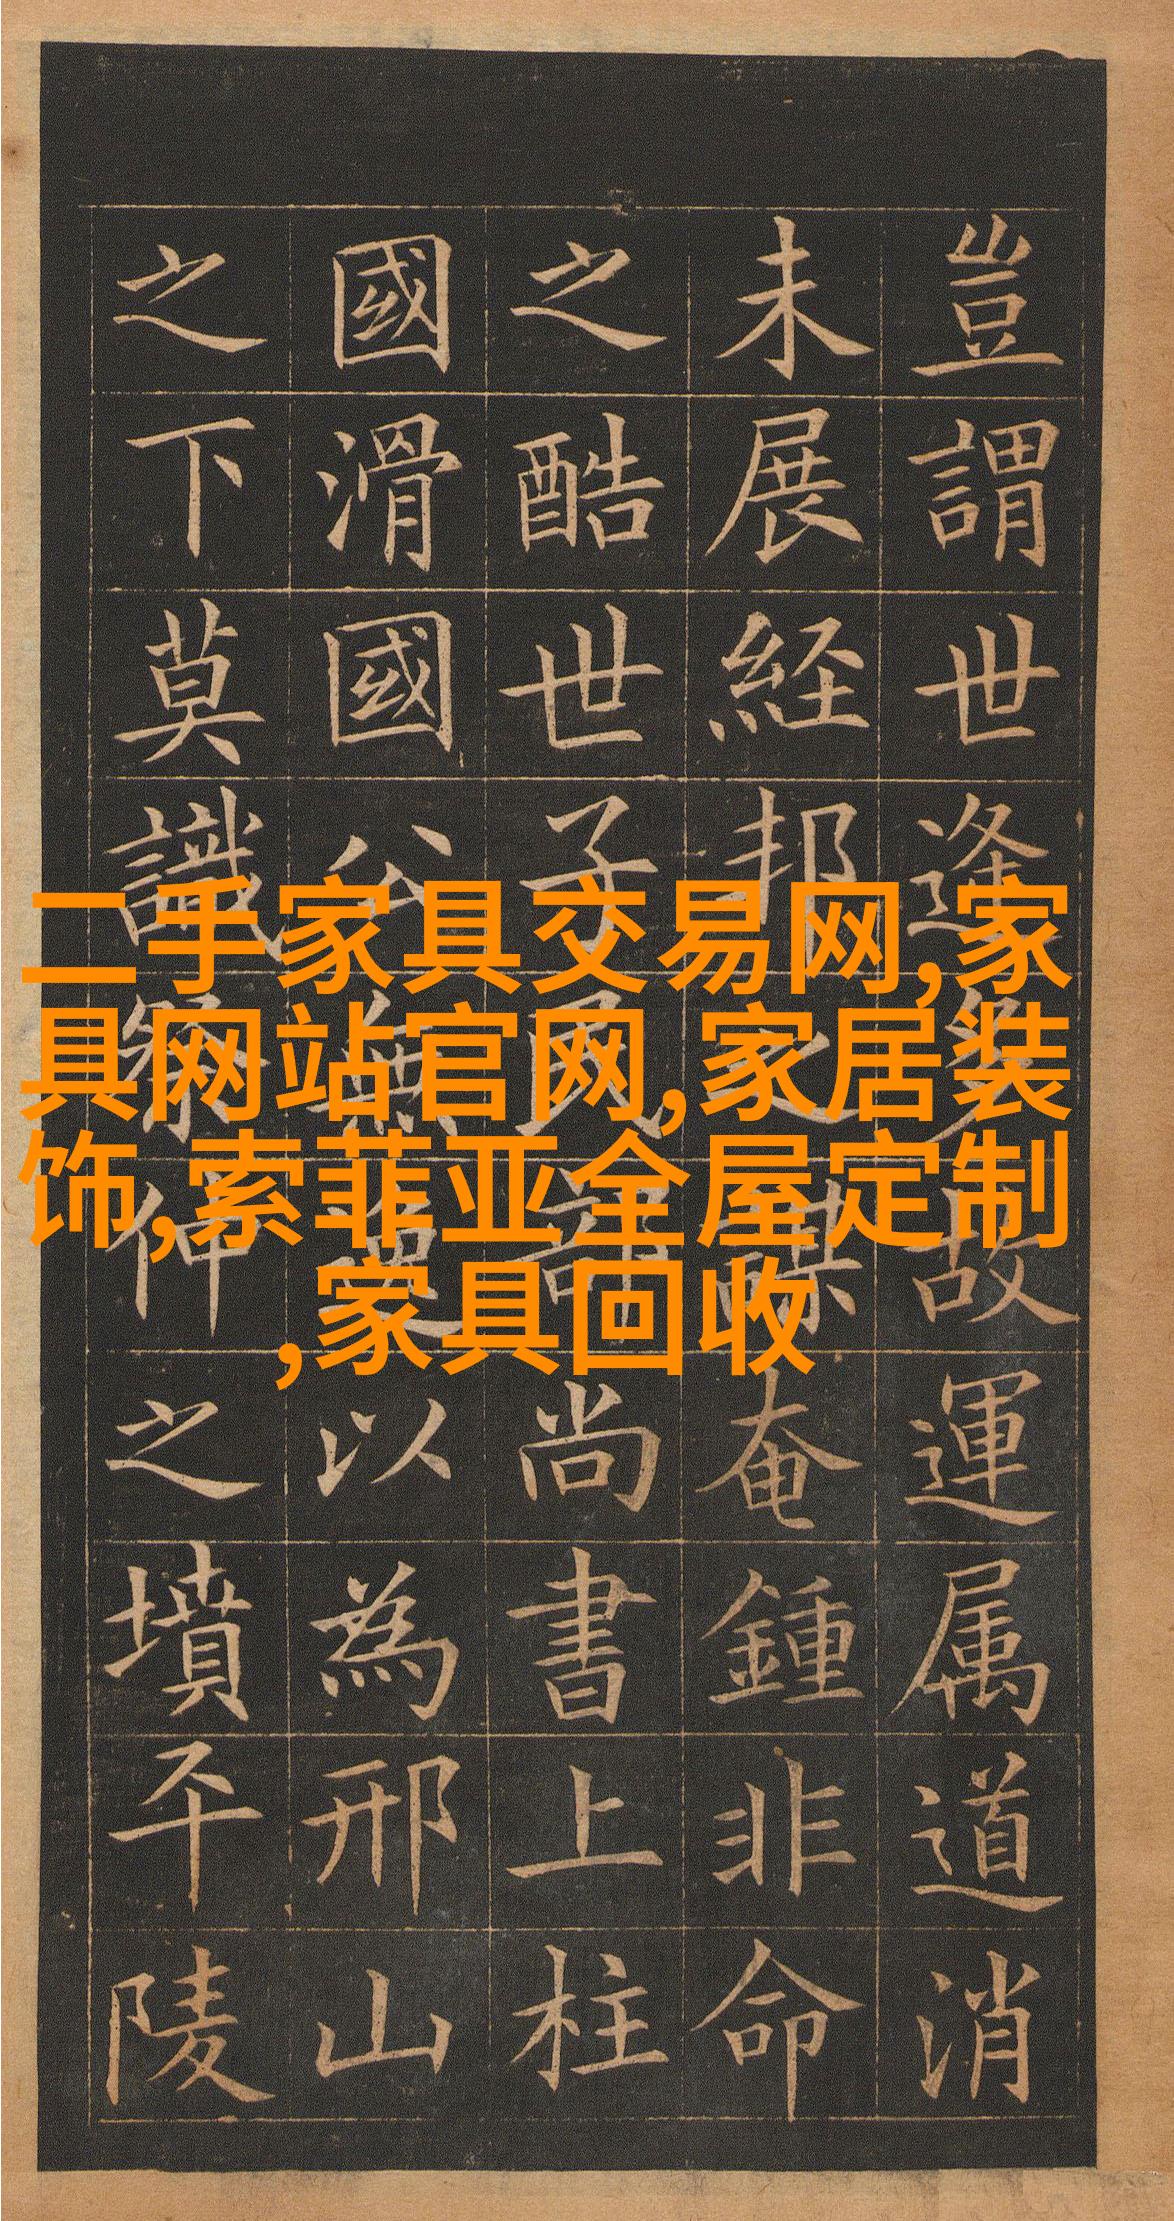 二手家具交易网,家
具网站官网,家居装
饰,索菲亚全屋定制
,家具回收
豈謂世逢多故運属道消
未展経邦之謀奄鍾非命
之酷世子民部尚書上柱
國滑國公無逸以為邢山
之下莫識祭仲之墳平陵